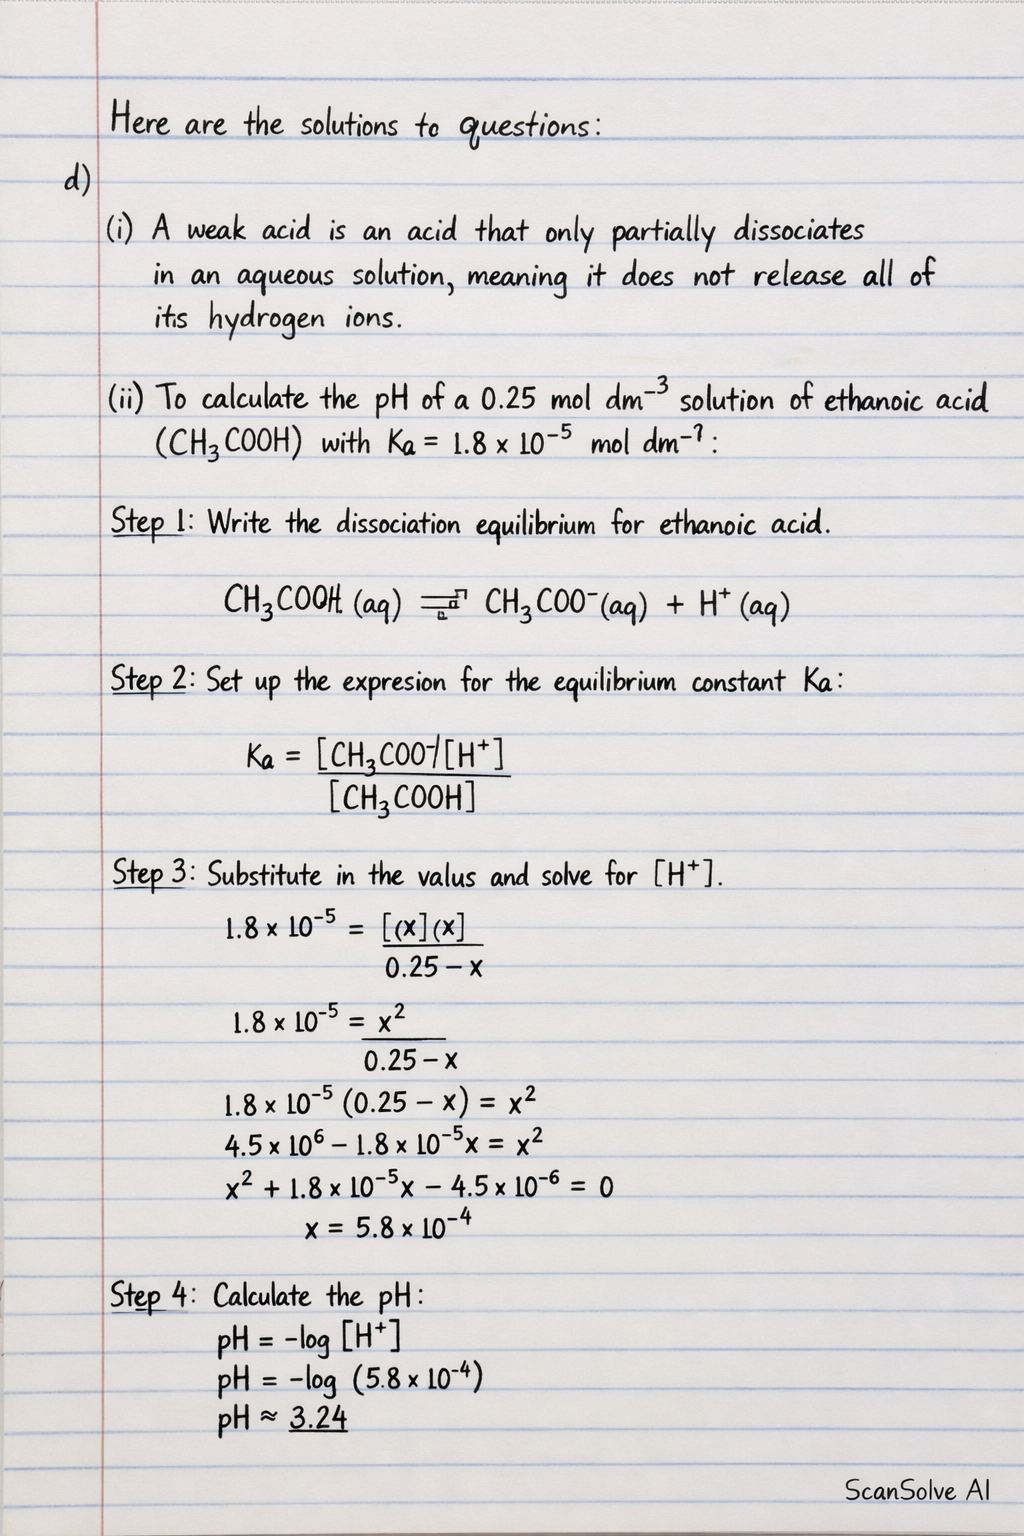 Here are the solutions to questions:
d)
(i) A weak acid is an acid that only partially dissociates
in an aqueous solution, meaning it does not release all of
its hydrogen ions.
(ii) To calculate the pH of a 0.25 mol dm⁻³ solution of ethanoic acid
(CH₃COOH) with Ka = 1.8 x 10⁻⁵ mol dm⁻?:
Step 1: Write the dissociation equilibrium for ethanoic acid.
CH₃COOH (aq) ⇌ CH₃COO⁻(aq) + H⁺ (aq)
Step 2: Set up the expresion for the equilibrium constant Ka:
Ka = [CH₃COO⁻/[H⁺]
[CH₃COOH]
Step 3: Substitute in the valus and solve for [H⁺].
1.8 x 10⁻⁵ = [(x](x]
0.25 – x
1.8 x 10⁻⁵ = x²
0.25 – x
1.8 x 10⁻⁵ (0.25 – x) = x²
4.5 x 10⁶ – 1.8 x 10⁻⁵x = x²
x² + 1.8 x 10⁻⁵x – 4.5 x 10⁻⁶ = 0
x = 5.8 x 10⁻⁴
Step 4: Calculate the pH:
pH = -log [H⁺]
pH = -log (5.8 x 10⁻⁴)
pH ≈ 3.24
ScanSolve AI